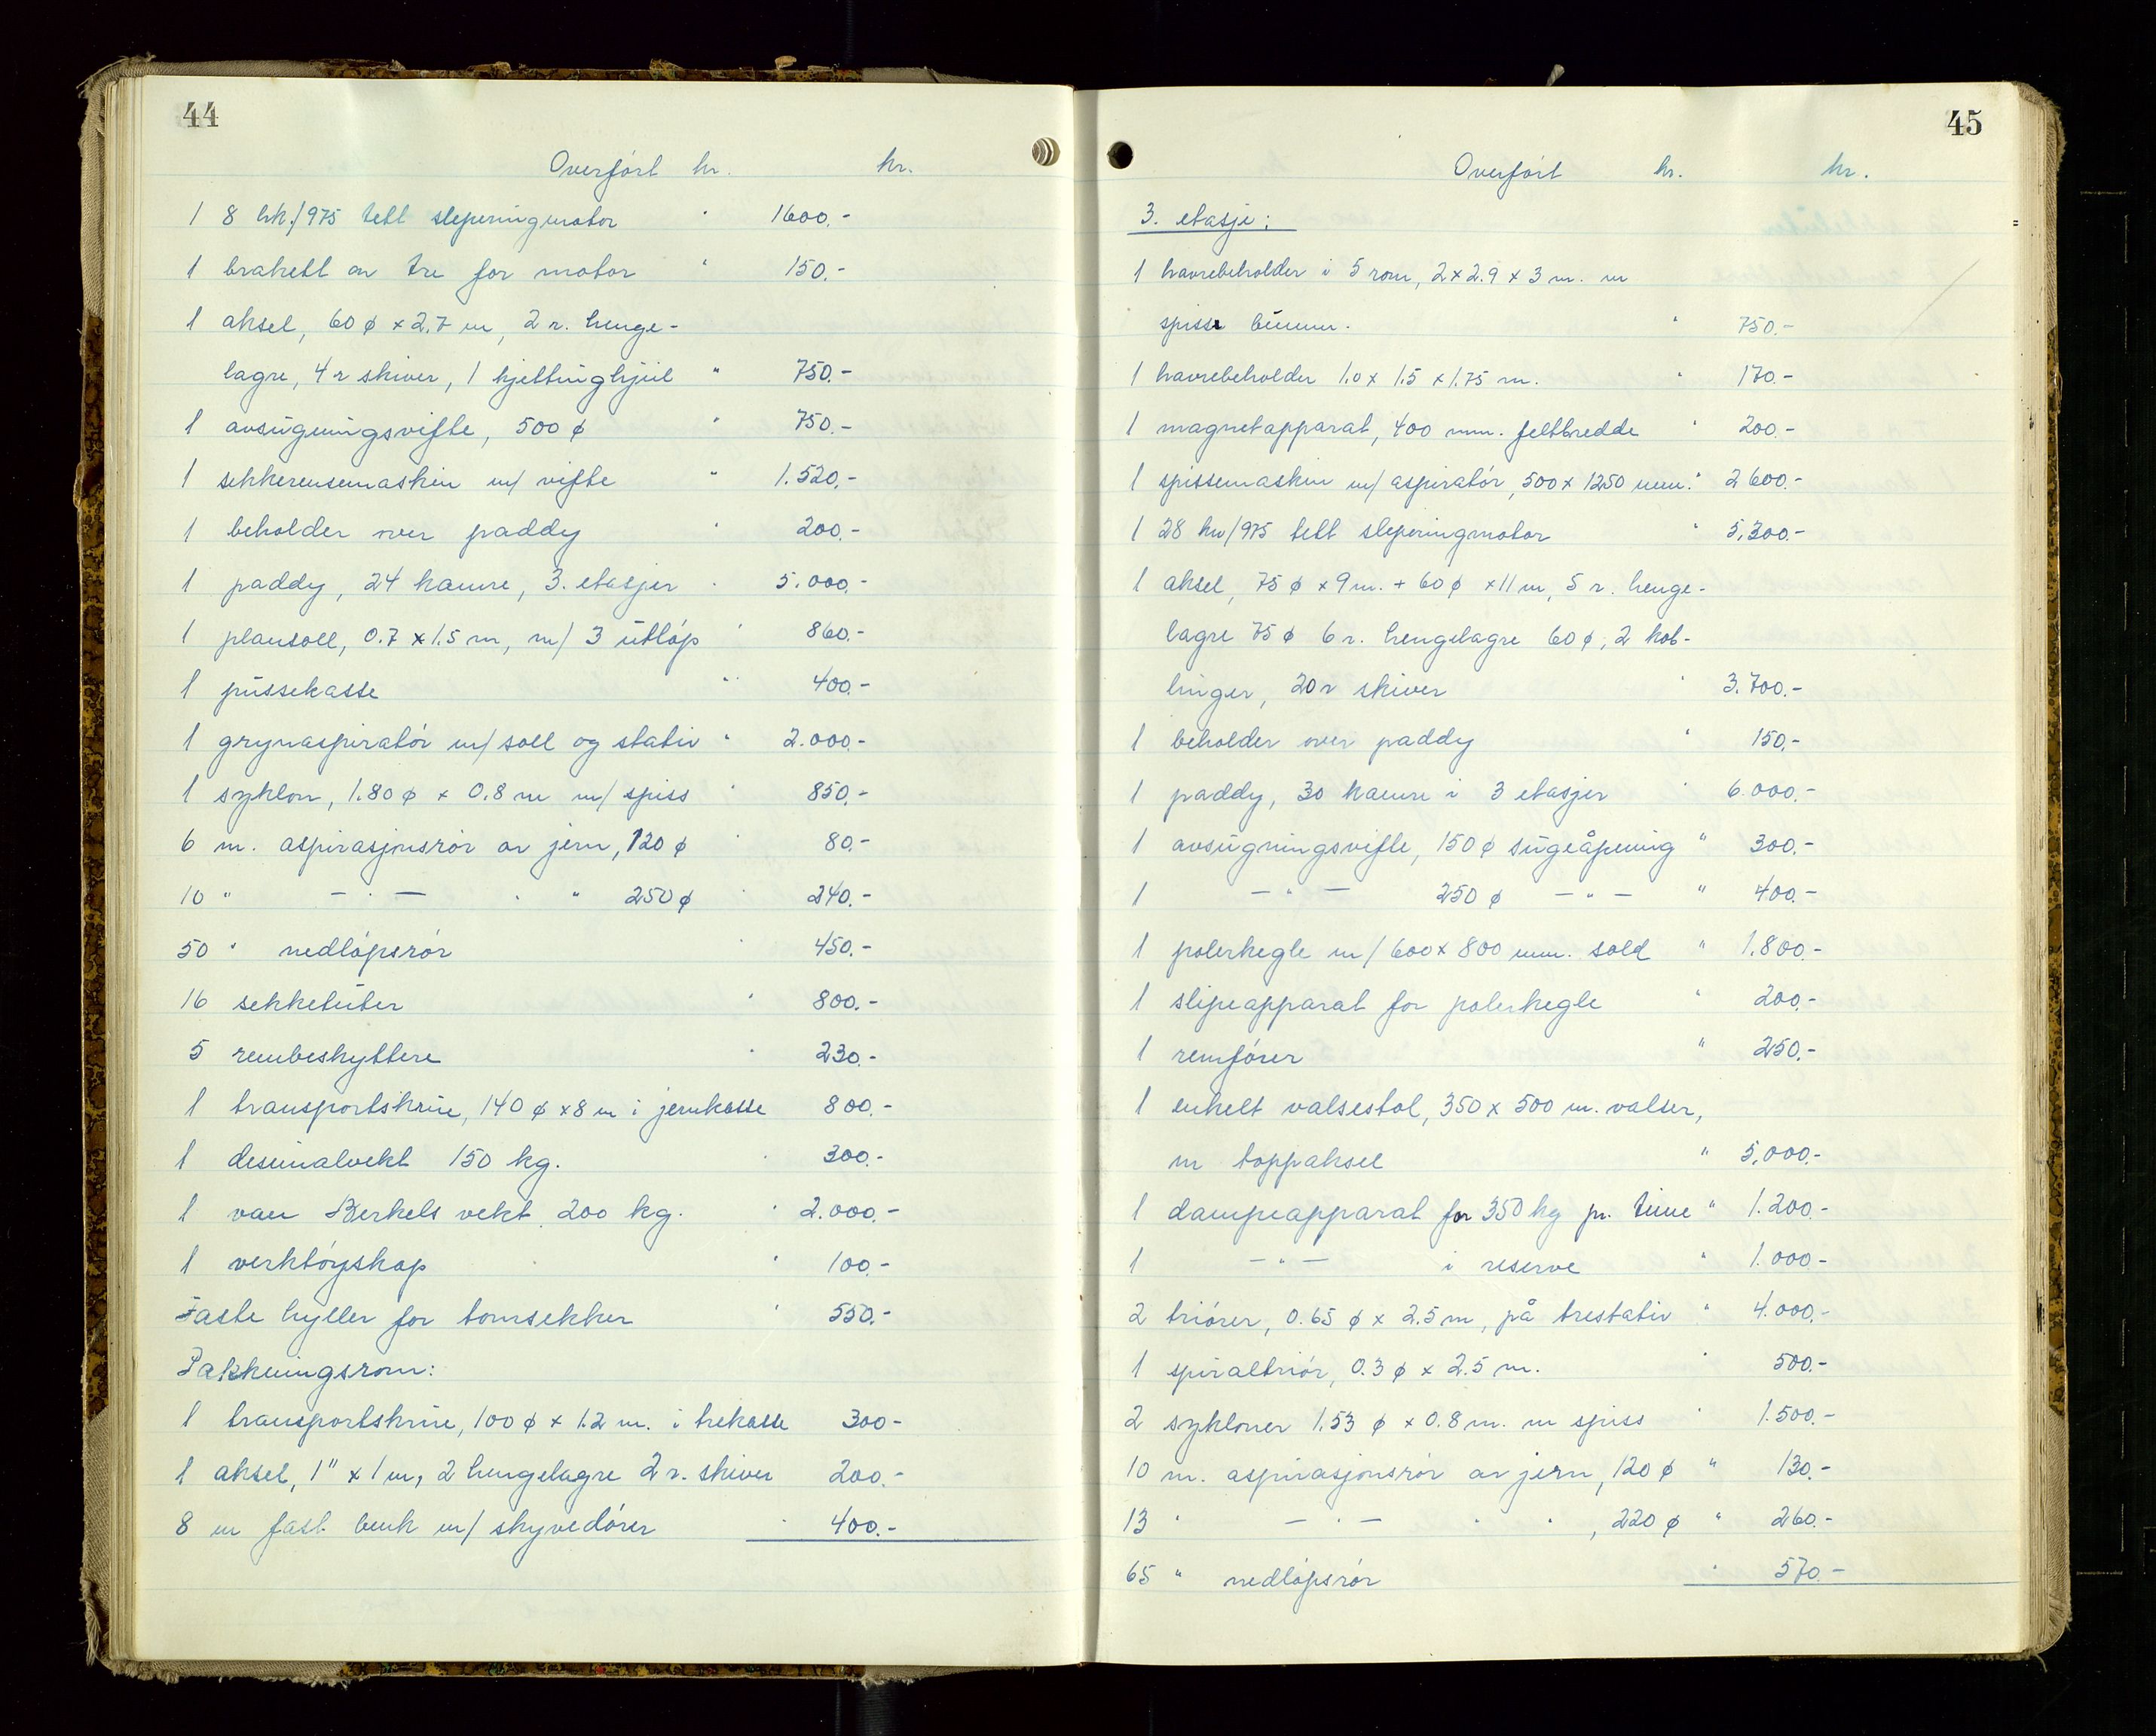 44
Overført kr. kr.
1 8 hk./975 tett sleperingmotor " 1600.-
1 brakett av tre for motor " 150.-
1 aksel, 60 φ x 2.7 m, 2 r. henge-
lagre, 4 r skiver, 1 kjettinghjul " 750.-
1 avsugningsvifte, 500 φ " 750.-
1 sekkerensemaskin m/ vifte " 1.520.-
1 beholder over paddy " 200.-
1 paddy, 24 kamre, 3. etasjer " 5.000.-
1 plansoll, 0.7 x 1.5 m, m/ 3 utløp " 860.-
1 pussekasse " 400.-
1 grynaspiratør m/ soll og stativ " 2.000.-
1 syklon, 1.80 φ x 0.8 m m/ spiss " 850.-
6 m. aspirasjonsrør av jern, 120 φ " 80.-
10 " — " — " " 250 φ " 240.-
50 " nedløpsrør " 450.-
16 sekketuter " 800.-
5 rembeskyttere " 230.-
1 transportskrue, 140 φ x 8 m i jernkasse 800.-
1 desimalvekt 150 kg. " 300.-
1 van Berkels vekt 200 kg. " 2.000.-
1 verktøyskap " 100.-
Faste hyller for tomsekker " 550.-
Pakkningsrom:
1 transportskrue, 100 φ x 1.2 m. i trekasse 300-
1 aksel, 1" x 1 m, 2 hengelagre 2 r. skiver 200.-
8 m fast benk m/ skyvedører " 400.-
45
Overført kr. kr.
3. etasje:
1 havrebeholder i 5 rom, 2 x 2.9 x 3 m. m
spisse binner. " 750.-
1 havrebeholder 1.0 x 1.5 x 1.75 m. " 170.-
1 magnetapparat, 400 mm. feltbredde " 200.-
1 spissemaskin m/ aspiratør, 500 x 1250 mm. " 2600.-
1 28 kw/975 tett sleperingmotor " 5,300.-
1 aksel, 75 φ x 9 m. + 60 φ x 11 m, 5 r. henge-
lagre 75 φ 6 r. hengelagre 60 φ, 2 kob-
linger, 20 r skiver " 3.700.-
1 beholder over paddy " 150.-
1 paddy, 30 kamre i 3 etasjer " 6.000.-
1 avsugningsvifte, 150 φ sugeåpning " 300.-
1 — " — 250 φ — " — " 400.-
1 polerkegle m/ 600 x 800 mm. sold " 1.800.-
1 slipeapparat for polerkegle " 200.-
1 remfører " 250.-
1 enkelt valsestol, 350 x 500 m. valser,
m toppaksel " 5,000.-
1 dampeapparat for 350 kg pr. time " 1.200.-
1 — " — i reserve " 1.000-
2 triører, 0.65 φ x 2.5 m, på trestativ " 4.000.-
1 spiraltriør, 0.3 φ x 2.5 m. " 500.-
2 sykloner 1.53 φ x 0.8 m. m spiss " 1.500.-
10 m. aspirasjonsrør av jern, 120 φ " 130.-
13 " — " — " " , 220 φ " 260.-
65 " nedløpsrør " 570.-